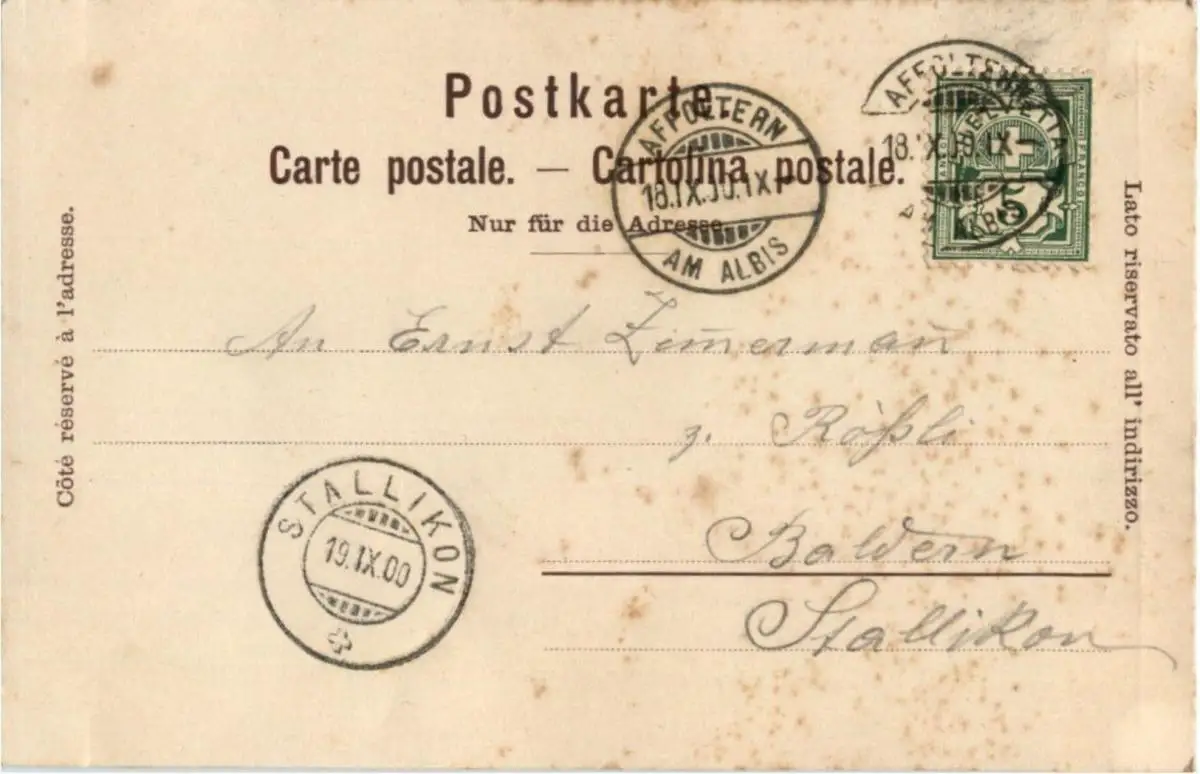 Postkarte.
Carte postale. — Cartolina postale.
Nur für die Adresse.
Côté réservé à l'adresse.
Lato riservato all' indirizzo.
AFFOLTERN
18.IX.00.IX–
AM ALBIS
AFFOLTERN
18.IX.00.IX–
ALBIS
HELVETIA
FRANCO
5
An Ernst Zim̅erman̅
z. Rößli
Baldern
Stallikon
STALLIKON
19.IX.00